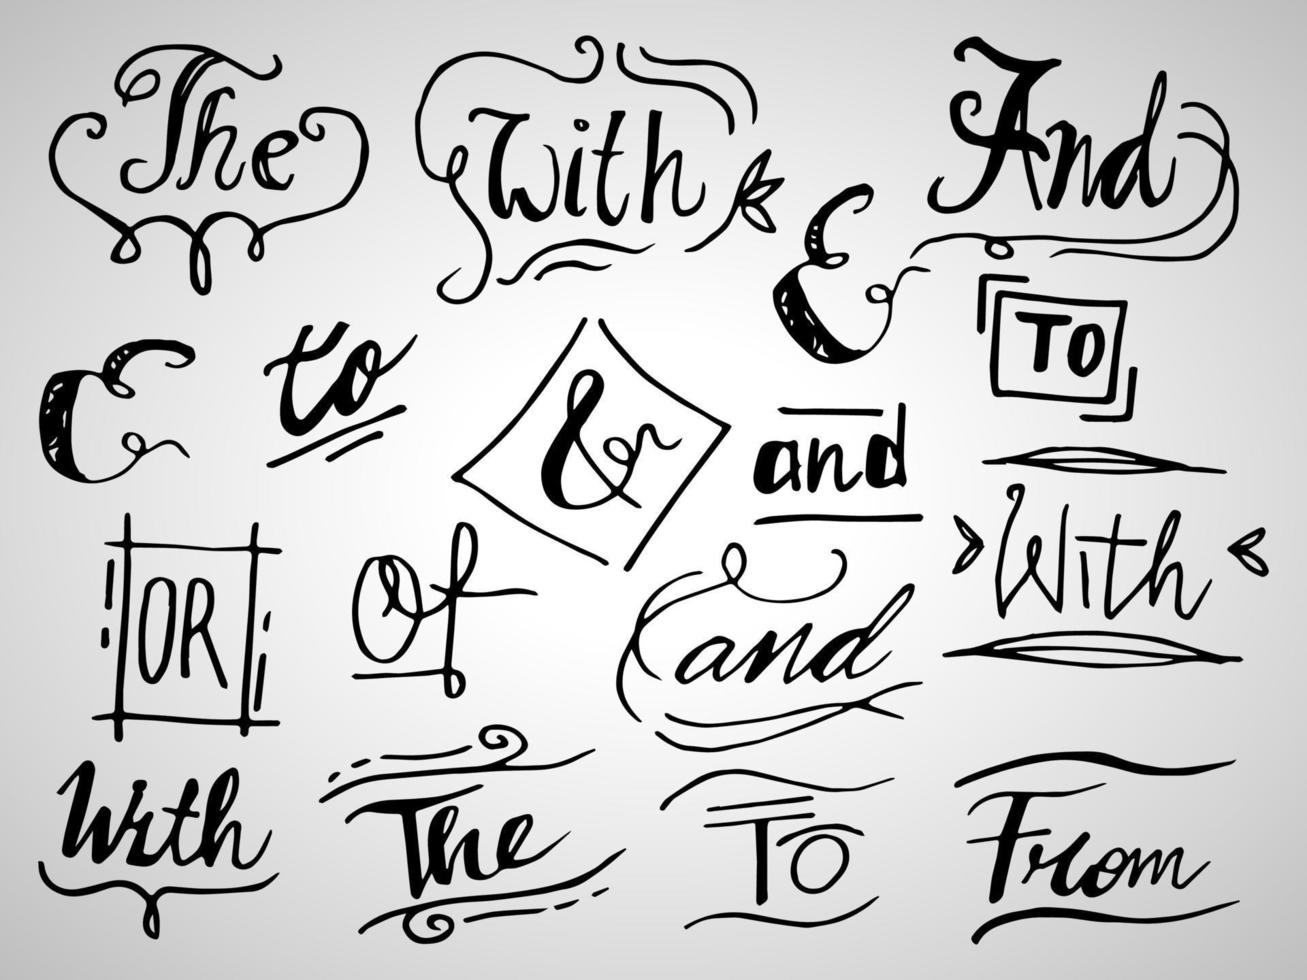 The
With
And
&
TO
&
to
&
and
With
OR
Of
and
With
The
TO
From